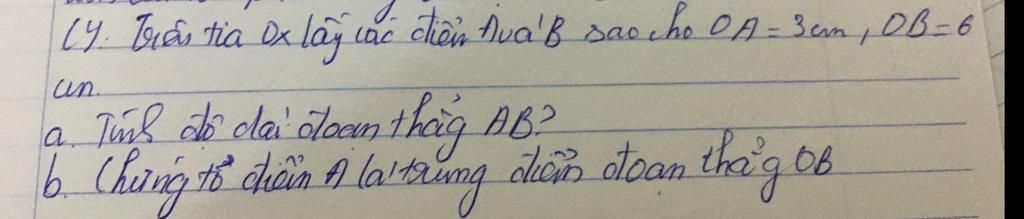 C4. Trên tia Ox lấy các điểm A và B sao cho OA = 3cm, OB = 6
cm.
a. Tính độ dài đoạn thẳng AB?
b. Chứng tỏ điểm A là trung điểm đoạn thẳng OB